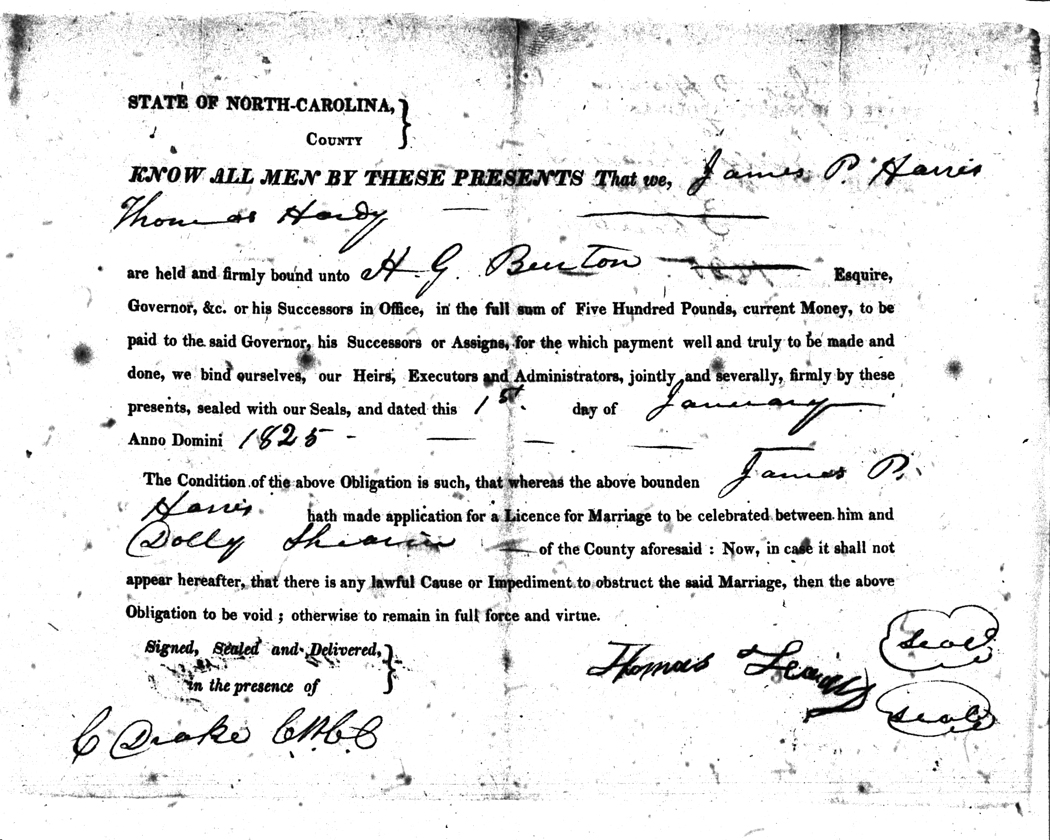 STATE OF NORTH-CAROLINA, }
COUNTY
KNOW ALL MEN BY THESE PRESENTS That we, James P. Harris
Thomas Hardy
are held and firmly bound unto H. G. Burton Esquire,
Governor, &c. or his Successors in Office, in the full sum of Five Hundred Pounds, current Money, to be
paid to the said Governor, his Successors or Assigns, for the which payment well and truly to be made and
done, we bind ourselves, our Heirs, Executors and Administrators, jointly and severally, firmly by these
presents, sealed with our Seals, and dated this 1st. day of January
Anno Domini 1825
The Condition of the above Obligation is such, that whereas the above bounden James P.
Harris hath made application for a Licence for Marriage to be celebrated between him and
Dolly Shearin of the County aforesaid : Now, in case it shall not
appear hereafter, that there is any lawful Cause or Impediment to obstruct the said Marriage, then the above
Obligation to be void ; otherwise to remain in full force and virtue.
Signed, Sealed and Delivered, }
in the presence of
Thomas Hardy
seal
seal
C Drake CWCC